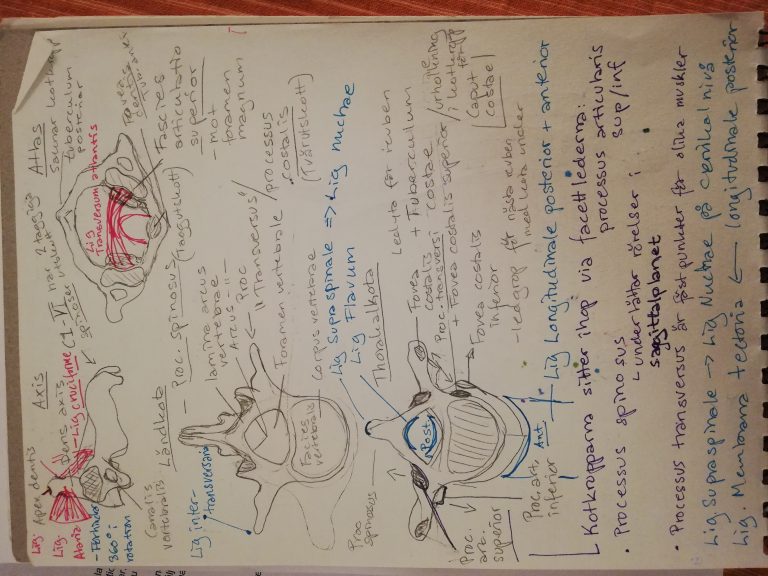 Axis
Lig. Apex dentis
Dens axis
Lig. cruciforme
Lig. Alaria
- Fenindor
360° i
rotation
Canalis
vertebralis
C1-VI har 2 taggiga
spinoser utskott
Atlas
Saknar kotkropp
tuberculum
posterior
Fovea
dentis
Lig
Transversum atlantis
Fascies
articulatio
superior
- mot
foramen
magnum
Ländkota
Proc. spinosus (Taggutskott)
lamina arcus
vertebrae
Arcus -"-
Proc
"Transversus"/processus
costalis
(Tvärutskott)
Foramen vertebrale
Corpus vertebrae
Facies
vertebralis
Lig inter-
transversaria
Lig Supraspinale => Lig nuchae
Lig Flavum
Thorakalkota
Proc
spinosus
Ledyta för revben
Fovea + Tuberculum
costalis
Proc. transversi costae
+ Fovea costalis superior
/urholkning
i kotkropp
för
Caput
costae
Fovea costalis
inferior
- ledgrop för nästa revben
med kota under
Post
Ant.
Lig Longitudinale posterior + anterior
Proc.
art.
superior
Proc. art.
inferior
Kotkropparna sitter ihop via facettlederna:
processus articularis
sup/inf
• Processus spinosus
underlättar rörelser i
sagittalplanet
• Processus transversus är fästpunkter för olika muskler
Lig. Supraspinale → Lig Nuchae på cervikal nivå
Lig. Membrana tectoria ← longitudinale posterior